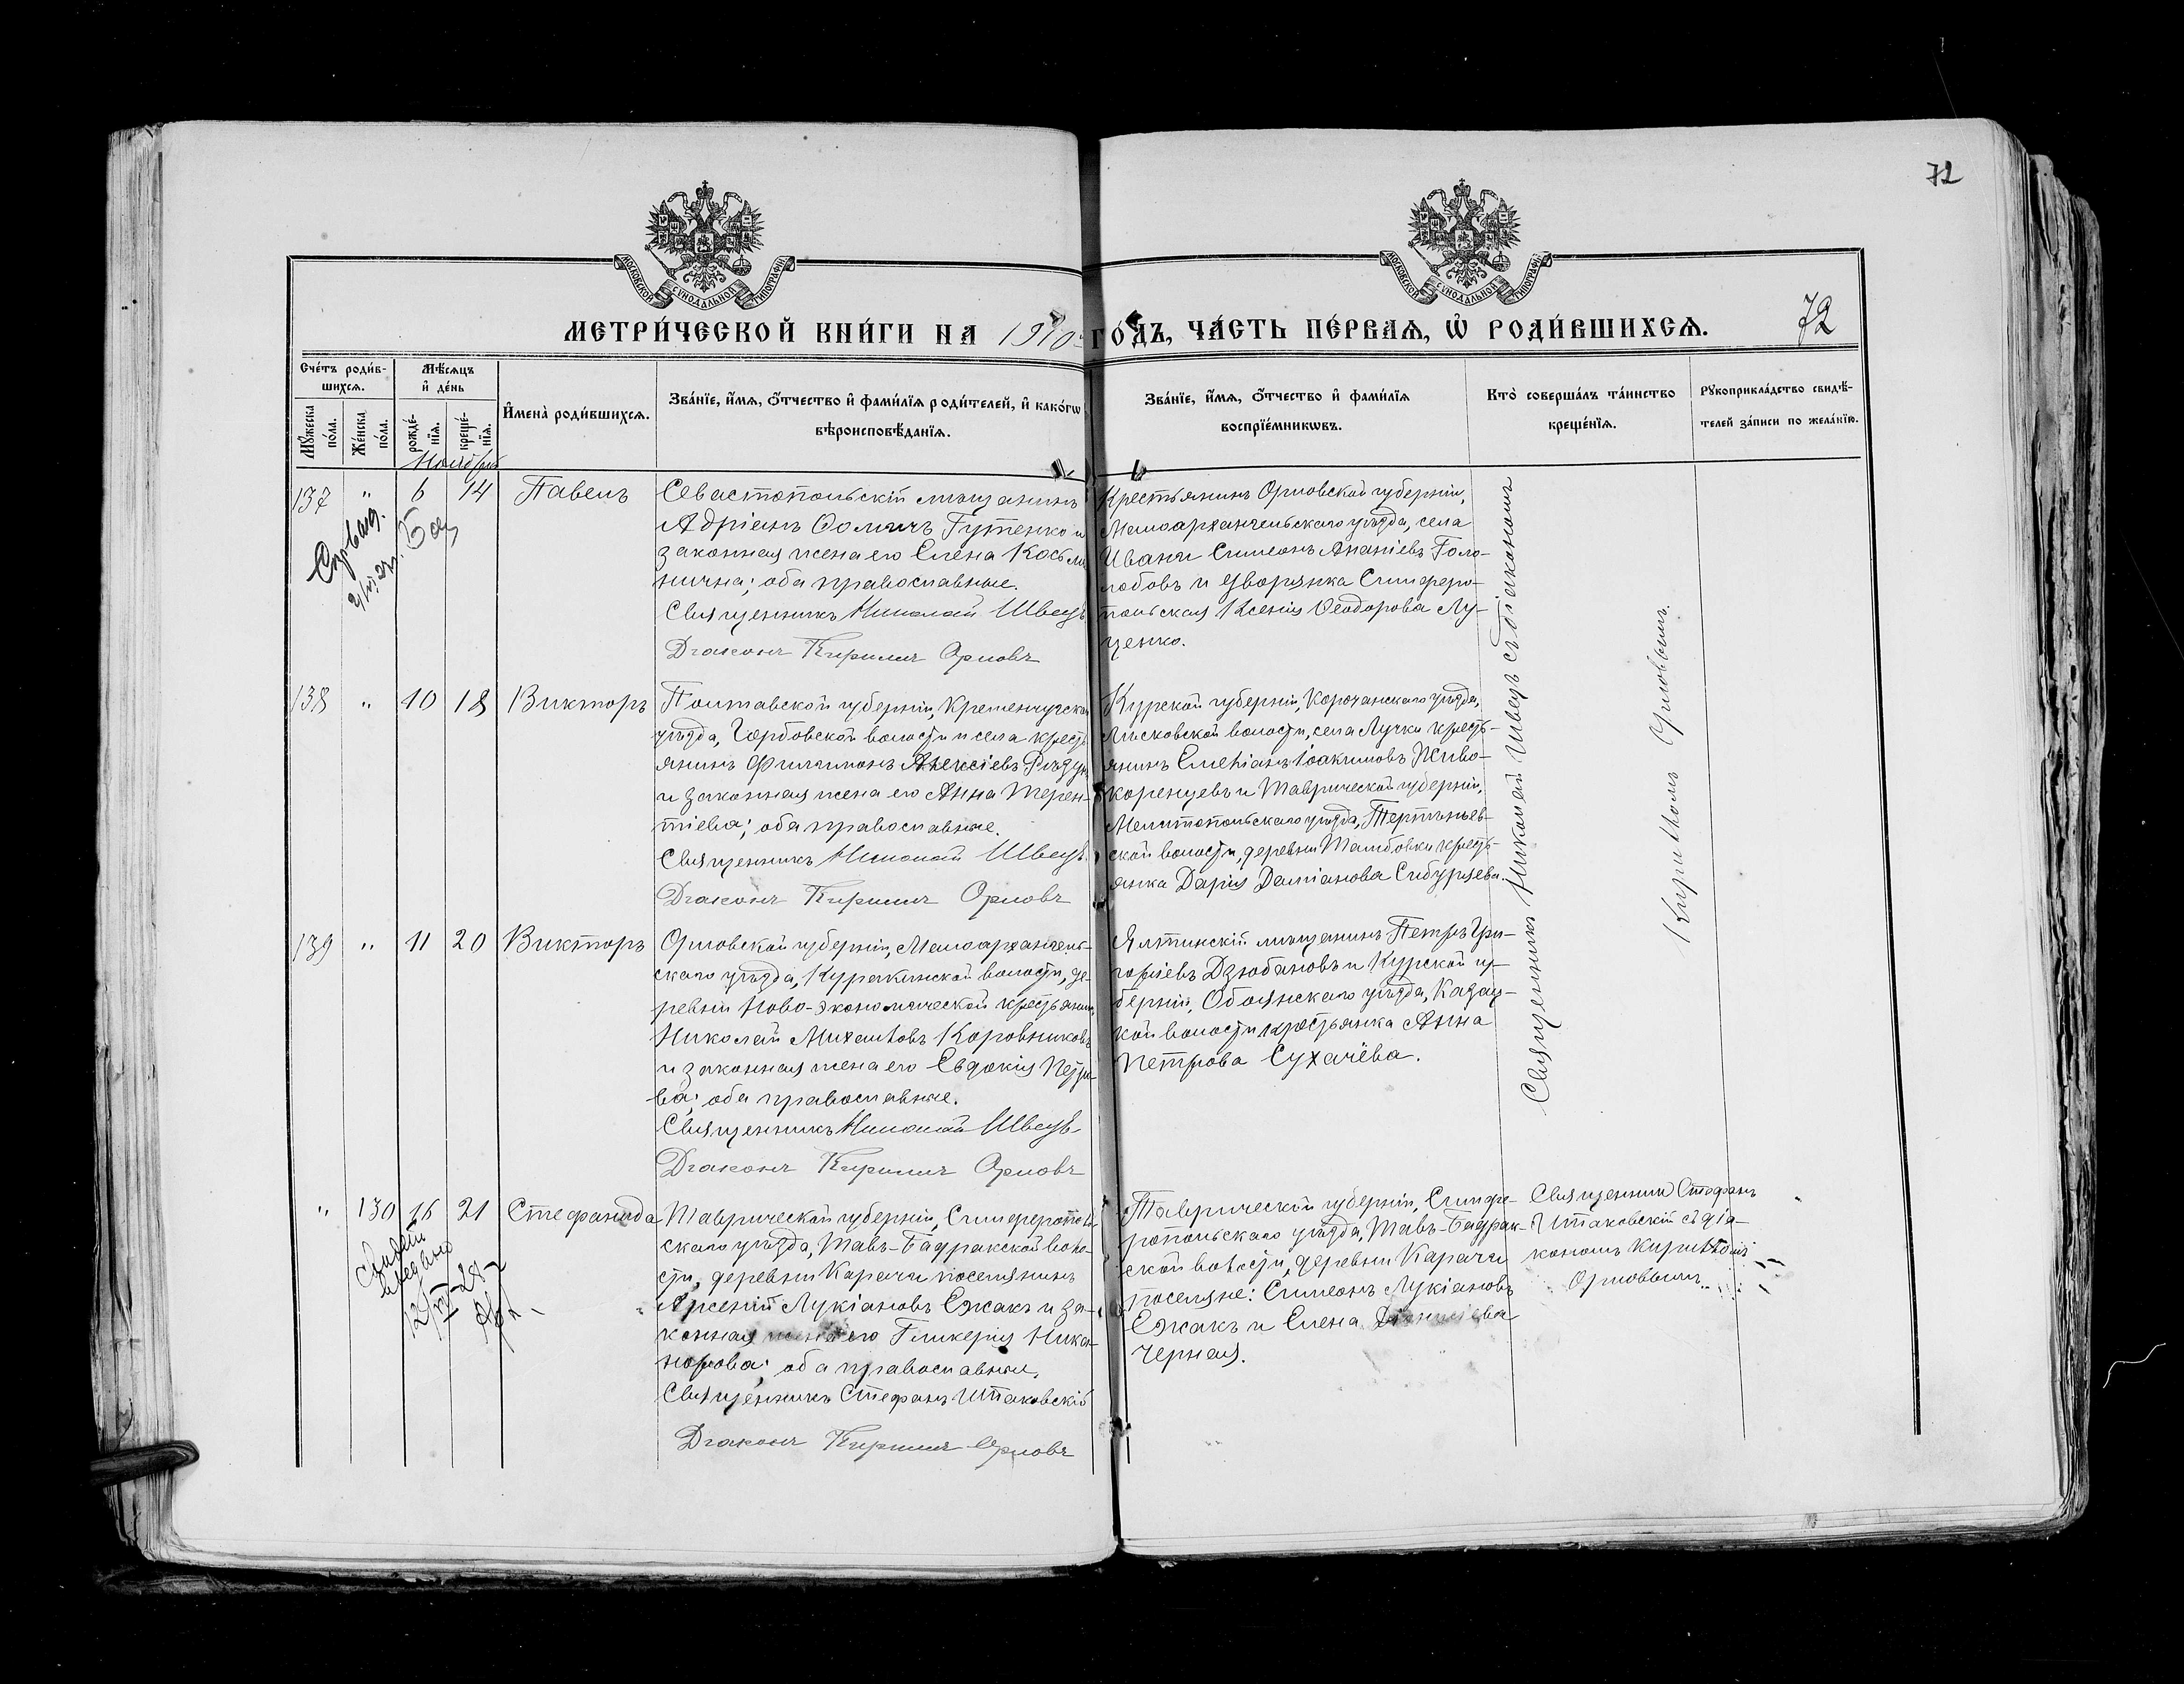 72
МОСКОВСКОЙ СѴНОДАЛЬНОЙ ТИПОГРАФІИ
МОСКОВСКОЙ СѴНОДАЛЬНОЙ ТИПОГРАФІИ
МЕТРИ́ЧЕСКОЙ КНИ́ГИ НА 1910 ГО́ДЪ, ЧА́СТЬ ПЕ́РВАѦ, Ѡ҆ РОДИ́ВШИХСѦ.
72
Сче́тъ роди́в-
шихсѧ.
Мꙋ́жеска
по́ла.
Же́нска
по́ла.
Мѣ́сѧцъ
и҆ де́нь
рожде́-
нїѧ.
креще́-
нїѧ.
И҆мена̀ роди́вшихсѧ.
Зва́нїе, и҆́мѧ, ѻ҆́тчество и҆ фами́лїѧ роди́телей, и҆ како́гѡ
вѣроисповѣ́данїѧ.
Зва́нїе, и҆́мѧ, ѻ҆́тчество и҆ фами́лїѧ
воспрїе́мникѡвъ.
Кто̀ соверша́лъ та́инство
креще́нїѧ.
Рꙋкоприкла́дство свидѣ́-
телей за́писи по жела́нїю.
Ноября
137 " 6 14 Павелъ
Севастопольскій мѣщанинъ
Адріанъ Ѳомичъ Гутенко и
законная жена его Елена Косьми
нична; оба православные.
Священникъ Николай Швецъ
Діаконъ Кириллъ Орловъ
Крестьянинъ Орловской губерніи,
Малоархангельскаго уѣзда, села
Ивани Симеонъ Ананіевъ Голо-
лобовъ и дворянка Симферо-
польская Ксенія Ѳеодорова Лу-
ценко.
138 " 10 18 Викторъ
Полтавской губерніи, Кременчугскаго
уѣзда, Горбовской волости и села кресть
янинъ Филимонъ Алексіевъ
и законная жена его Анна Терен-
тіева; оба православные.
Священникъ Николай Швецъ
Діаконъ Кириллъ Орловъ
Курской губерніи, Корочанскаго уѣзда,
волости, села Лучки кресть-
янинъ Емеліанъ Іоакимовъ Живо-
коренцевъ и Таврической губерніи,
Мелитопольскаго уѣзда,
ской волости, деревни Тамбовки кресть-
янка Дарія Даміанова Сибирцева.
139 " 11 20 Викторъ
Орловской губерніи, Малоархангель-
скаго уѣзда, Куракинской волости, де-
ревни Ново-Экономической крестьянинъ
Николай Михаиловъ Коровниковъ
и законная жена его Евдокія Петро-
ва; оба православные.
Священникъ Николай Швецъ
Діаконъ Кириллъ Орловъ
Ялтинскій мѣщанинъ Петръ Гри-
горіевъ Дзюбановъ и Курской гу-
берніи, Обоянскаго уѣзда, Казац-
кой волости крестьянка Анна
Петрова Сухачёва.
Священникъ Николай Швецъ съ діакономъ
Кирилломъ Орловымъ.
" 130 16 21 Стефанида
Таврической губерніи, Симферополь
скаго уѣзда, Тавъ-Бадракской воло-
сти, деревни Карачи поселянинъ
Арсеній Лукіановъ Ежакъ и за-
конная жена его ГликеріяНика-
норова; оба православные.
Священникъ Стефанъ Штаковскій
Діаконъ Кириллъ Орловъ
Таврической губерніи, Симфе-
ропольскаго уѣзда, Тавъ-Бадрак-
ской волости, деревни Карачи
поселяне: Симеонъ Лукіановъ
Ежакъ и Елена Діонисіева
Черная.
Священникъ Стефанъ
Штаковскій съ діа-
кономъ Кирилломъ
Орловымъ.